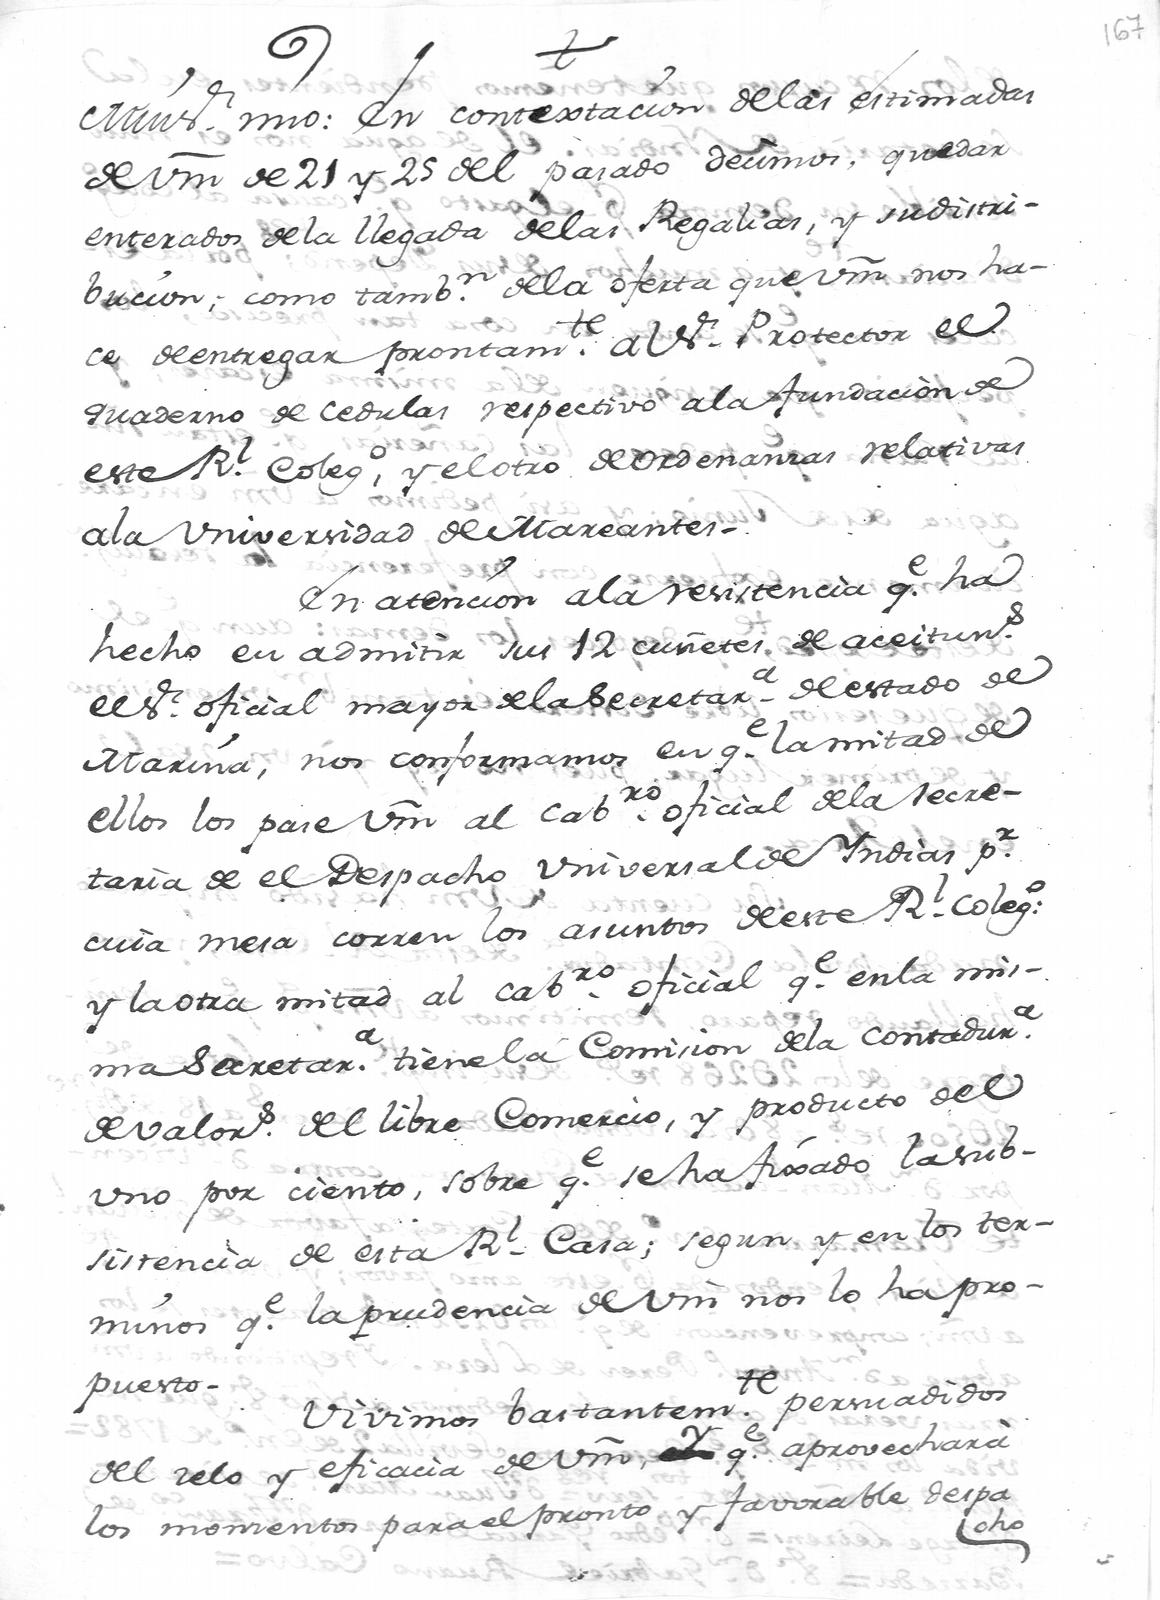 167
Mui Sr. mio: En contextacion delas estimadas
de Vm de 21 y 25 del pasado decimos, quedar
enterados dela llegada delas Regalias, y sudistri-
bucion; como tambn. dela oferta que Vm nos ha-
ce deentregar prontamte. al Sr. Protector el
quaderno de Cedulas respectivo ala fundacion de
este Rl. Colego, y elotro deordenanzas relativas
ala Universidad de Mareantes-
En atencion ala resistencia qe. ha
hecho en admitir sus 12 cuñetes de aceituns.
el Sr. oficial mayor dela Secretara. de estado de
Marina, nos conformamos en qe. la mitad de
ellos los pase Vm al Cabro. oficial dela secre-
taria de el Despacho Universal de Yndias pr.
cuia mesa corren los asuntos deeste Rl. Colego:
y laotra mitad al Cabro. oficial qe. enla mis-
ma Secretara. tiene la Comision dela Contadura.
devalors. del libre Comercio, y producto del
uno por ciento, sobre qe. se ha fixado lasub-
sistencia de esta Rl. Casa; segun y en los ter-
minos qe. la prudencia de Vm nos lo ha pro-
puesto-
Vivimos bastantemte. persuadidos
del zelo y eficacia de Vm, Y qe. aprovechará
los momentos para el pronto y favorable despa
cho